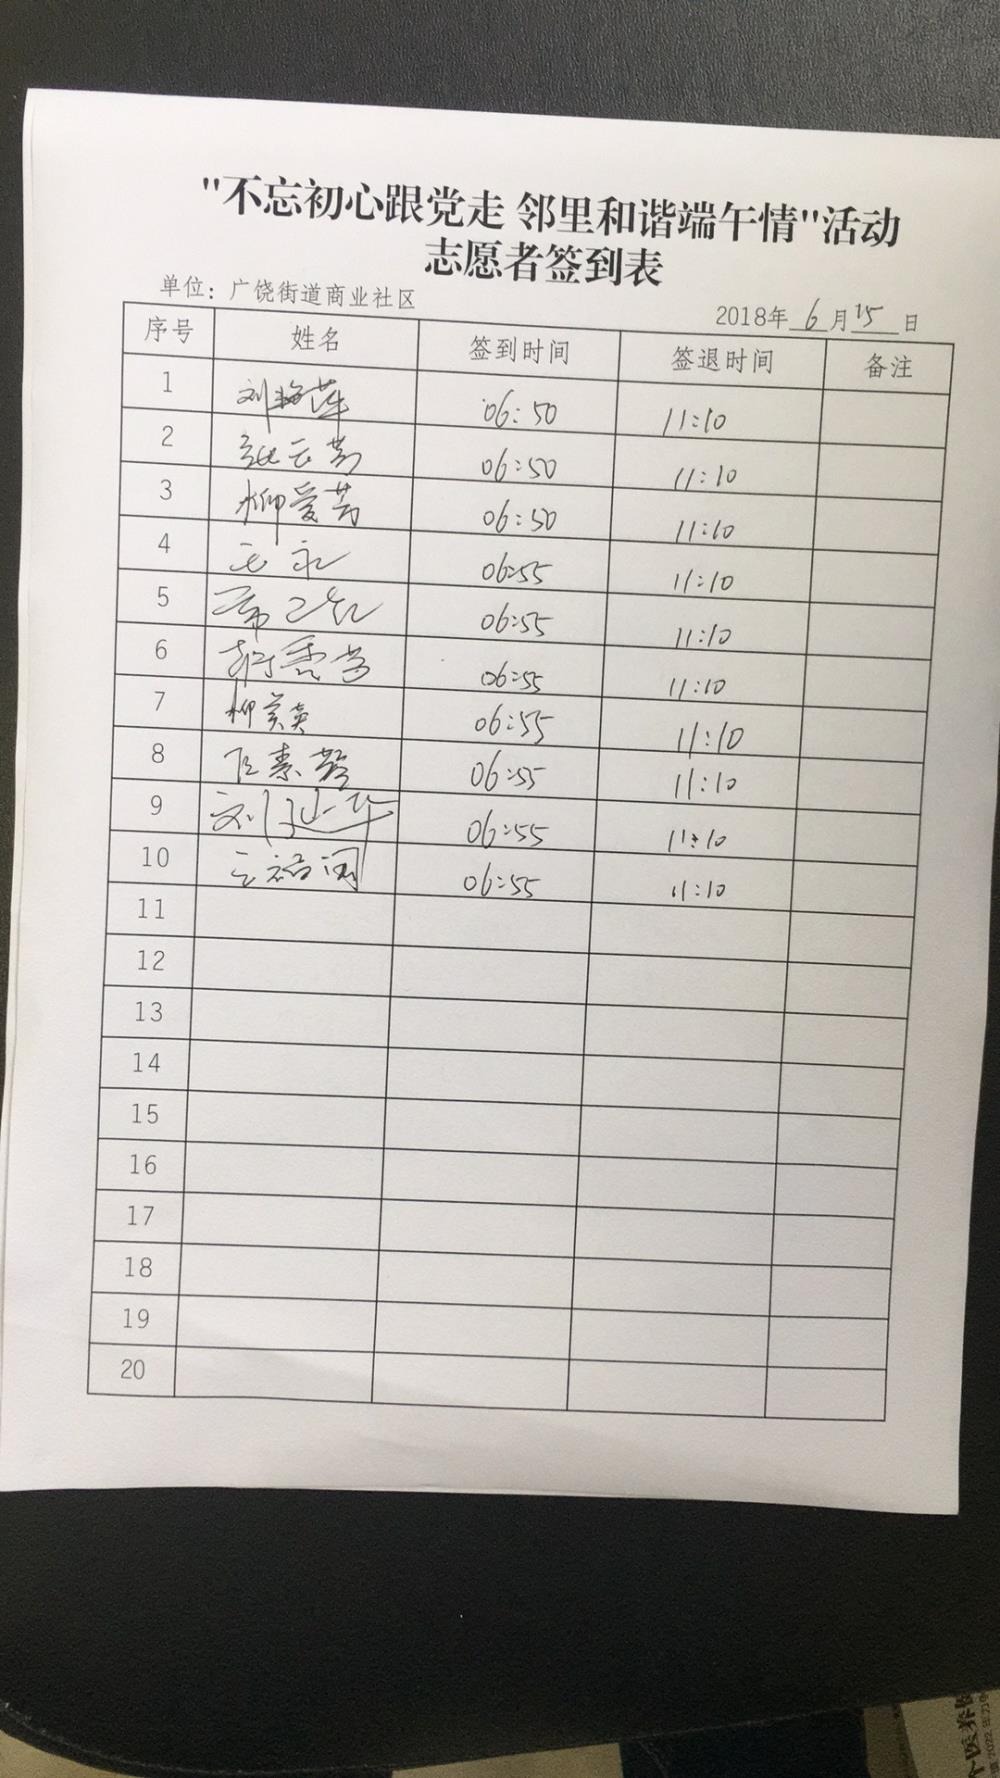 "不忘初心跟党走 邻里和谐端午情"活动
志愿者签到表
单位：广饶街道商业社区
2018年 6 月 15 日
序号 姓名 签到时间 签退时间 备注
1 刘 萍 06:50 11:10
2 张云芳 06:50 11:10
3 柳爱芳 06:50 11:10
4 王永 06:55 11:10
5 06:55 11:10
6 06:55 11:10
7 柳美英 06:55 11:10
8 素 06:55 11:10
9 刘 华 06:55 11:10
10 王 06:55 11:10
11
12
13
14
15
16
17
18
19
20